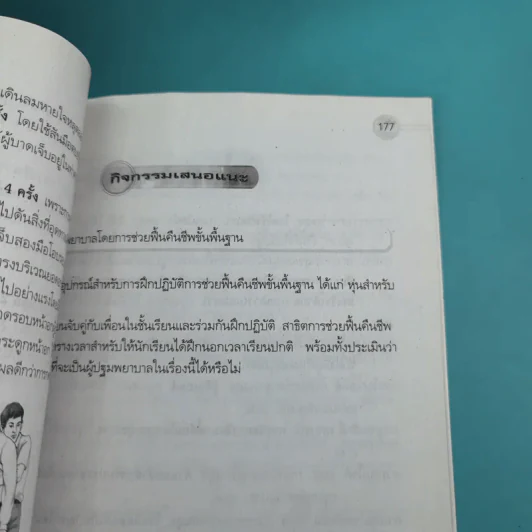 เดินลมหายใจ
ครั้ง โดยใช้สันมือ
ผู้บาดเจ็บอยู่ใน
4 ครั้ง เพราะ
ไปดันสิ่งที่อุด
เจ็บสองมือโอบ
ตรงบริเวณยอด
ไปอย่างแรงโดย
ารอบหน้าอก
กระดูกหน้าอก
ผลดีกว่าการ
177
กิจกรรมเสนอแนะ
พยาบาลโดยการช่วยฟื้นคืนชีพขั้นพื้นฐาน
อุปกรณ์สำหรับการฝึกปฏิบัติการช่วยฟื้นคืนชีพขั้นพื้นฐาน ได้แก่ หุ่นสำหรับ
ยนจับคู่กับเพื่อนในชั้นเรียนและร่วมกันฝึกปฏิบัติ สาธิตการช่วยฟื้นคืนชีพ
รางเวลาสำหรับให้นักเรียนได้ฝึกนอกเวลาเรียนปกติ พร้อมทั้งประเมินว่า
ที่จะเป็นผู้ปฐมพยาบาลในเรื่องนี้ได้หรือไม่